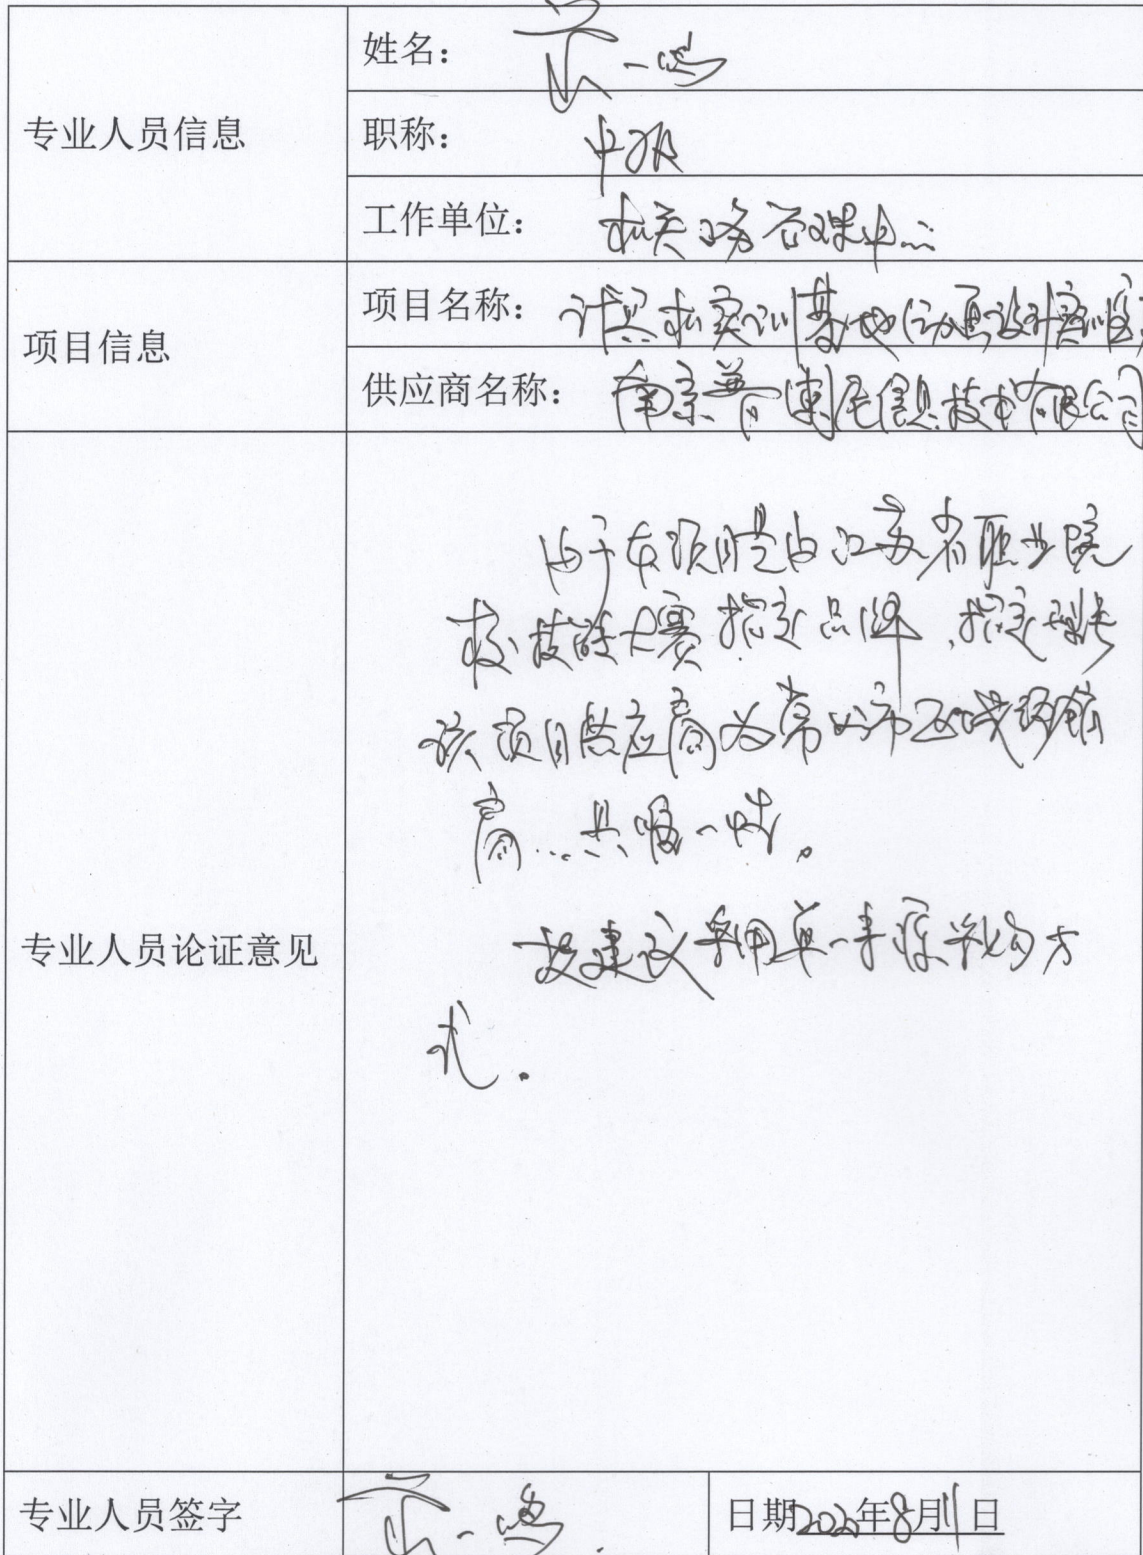 专业人员信息
姓名：一鸣
职称：中级
工作单位：机关服务管理中心
项目信息
项目名称：计算机实训基地(动画设计实训室
供应商名称：南京普信息技术有限公司
专业人员论证意见
由于本项目是由江苏省职业院
校技能大赛指定品牌、指定型号
该项目供应商为常州市区域经销
商，具唯一性。
故建议采用单一来源采购方
式。
专业人员签字 一鸣
日期2020年8月11日